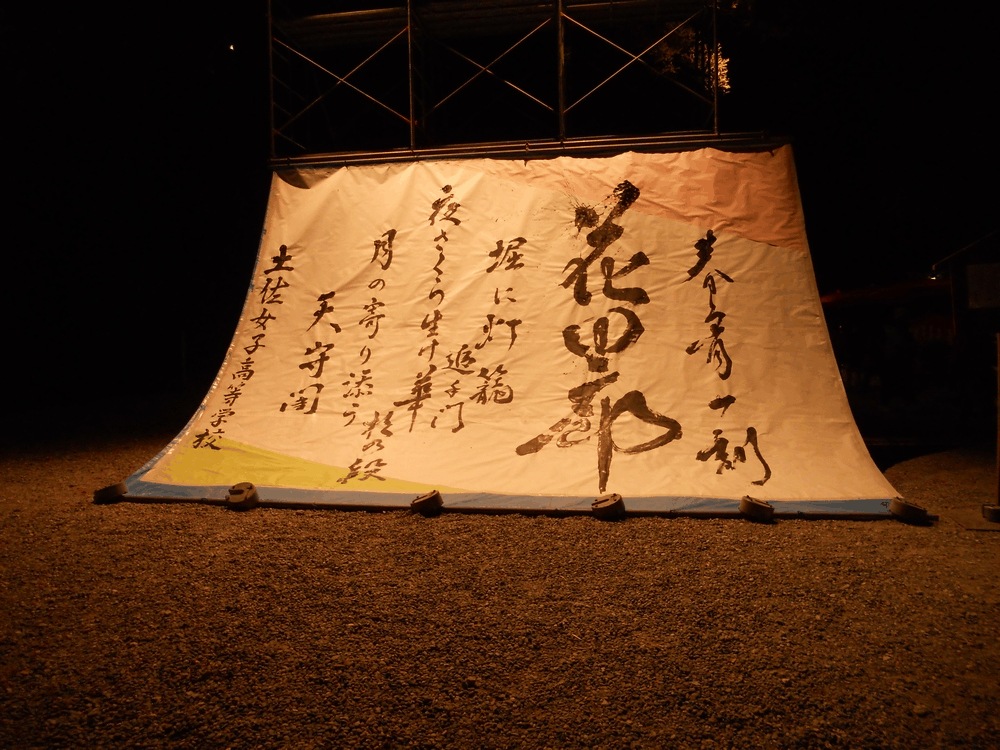 春宵一刻
花回廊
堀に灯籠
追手門
夜さくら生け華
杉の段
月の寄り添う
天守閣
土佐女子高等学校